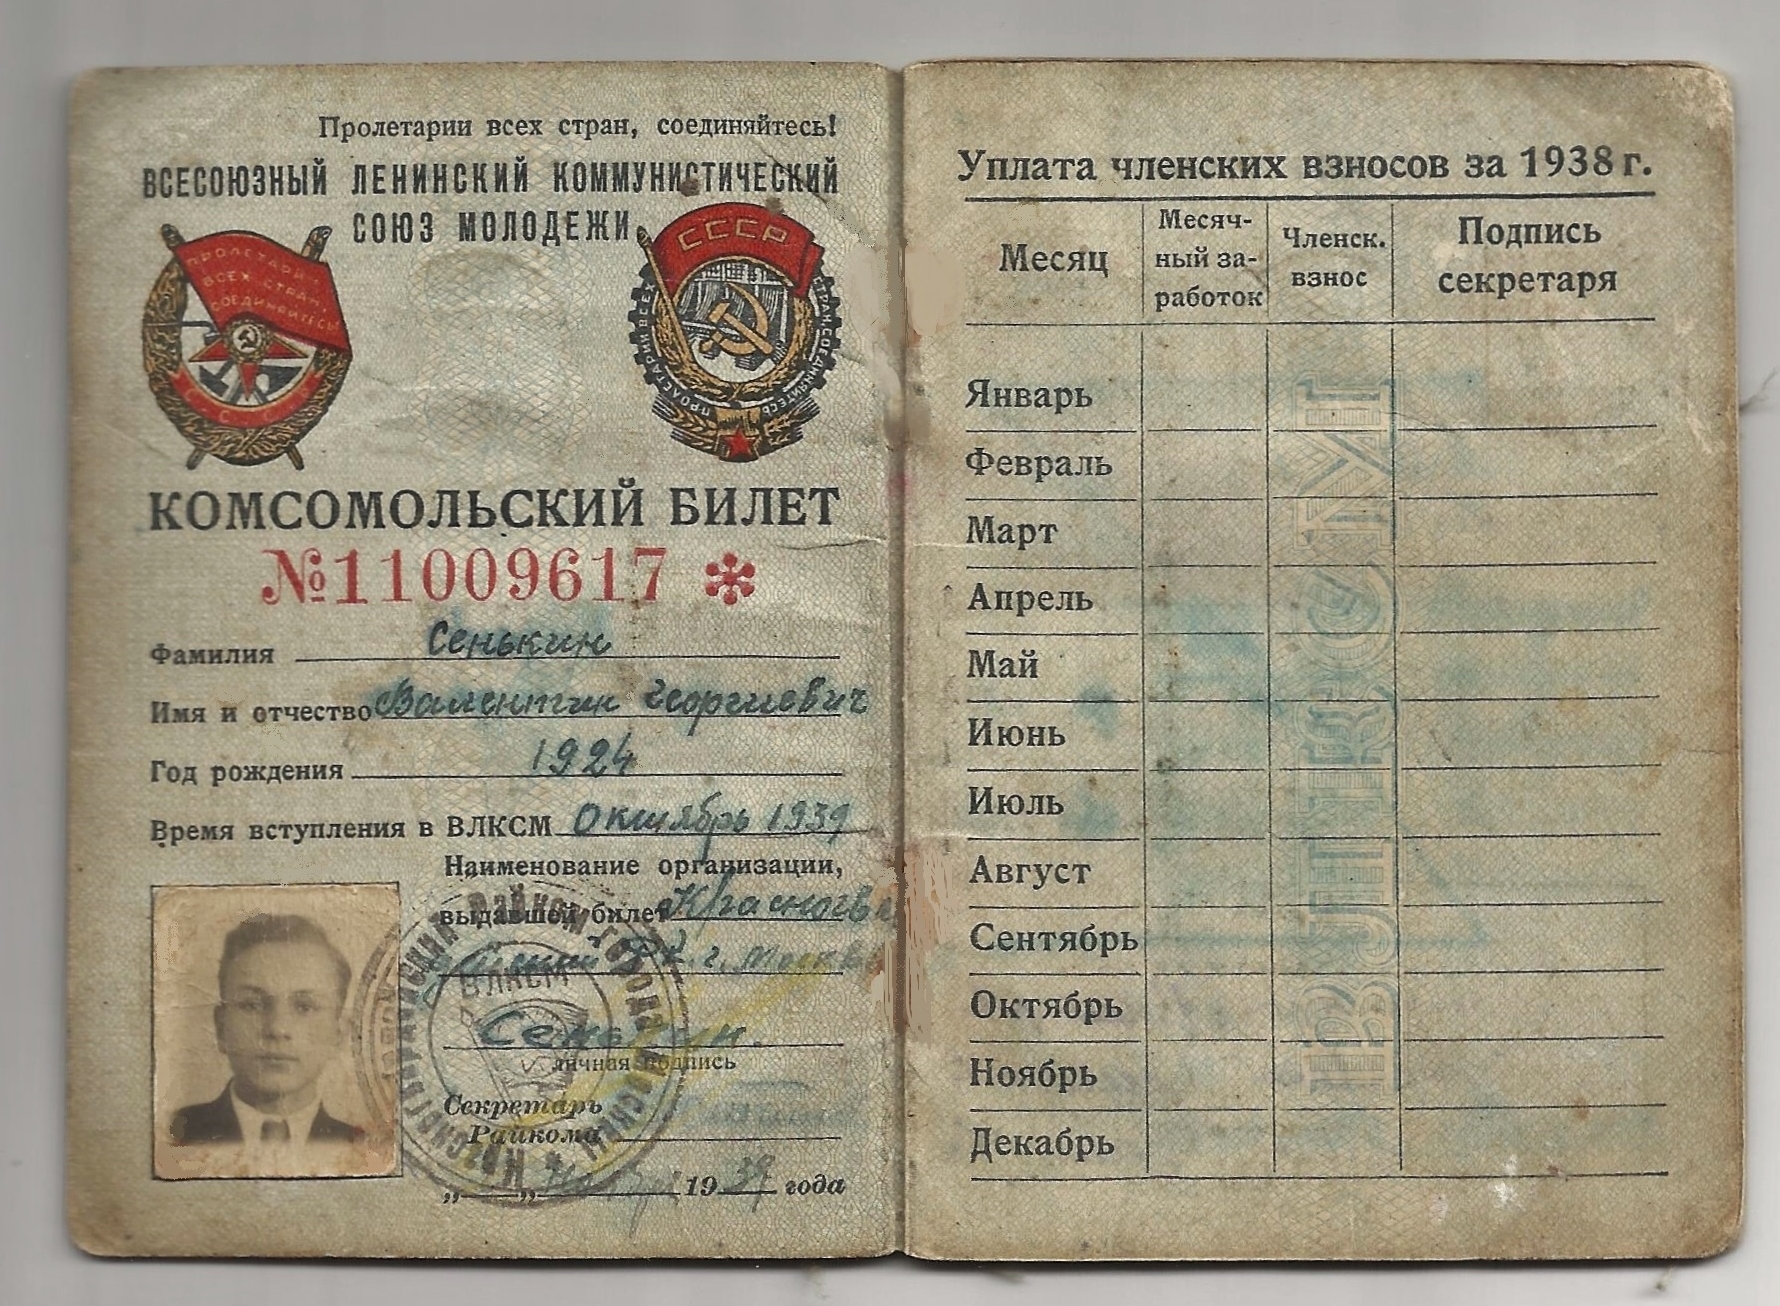 Пролетарии всех стран, соединяйтесь!
ВСЕСОЮЗНЫЙ ЛЕНИНСКИЙ КОММУНИСТИЧЕСКИЙ
СОЮЗ МОЛОДЕЖИ
ПРОЛЕТАРИИ
ВСЕХ СТРАН,
СОЕДИНЯЙТЕСЬ
СССР
СССР
ПРОЛЕТАРИИ ВСЕХ СТРАН, СОЕДИНЯЙТЕСЬ
КОМСОМОЛЬСКИЙ БИЛЕТ
№11009617 *
Фамилия Сенькин
Имя и отчество Валентин Георгиевич
Год рождения 1924
Время вступления в ВЛКСМ Октябрь 1939
Наименование организации,
выдавшей билет Красногва
г. Москв
ВЛКСМ
Сенькин.
личная подпись
Секретарь
Райкома
„ “ 1939 года
Уплата членских взносов за 1938 г.
Месяц
Месяч-
ный за-
работок
Членск.
взнос
Подпись
секретаря
Январь
Февраль
Март
Апрель
Май
Июнь
Июль
Август
Сентябрь
Октябрь
Ноябрь
Декабрь
ВЛКСМ